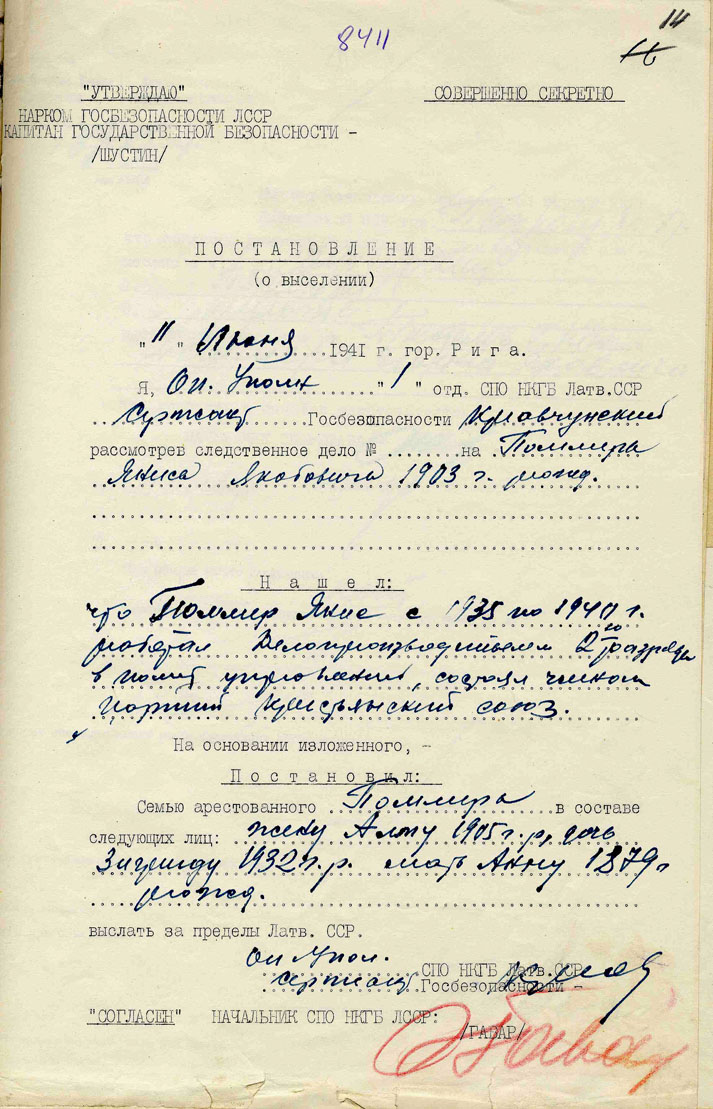 14
8411
"УТВЕРЖДАЮ"
СОВЕРШЕННО СЕКРЕТНО
НАРКОМ ГОСБЕЗОПАСНОСТИ ЛССР
КАПИТАН ГОСУДАРСТВЕННОЙ БЕЗОПАСНОСТИ -
/ШУСТИН/
ПОСТАНОВЛЕНИЕ
(о выселении)
" " " Июня 1941 г. гор. Рига.
Я, Оп. Уполн "1" отд. СПО НКГБ Латв.ССР
Сержант Госбезопасности Кравчунский
рассмотрев следственное дело № на Поммера
Яниса Якобовича 1903 г. рожд.
Нашел:
что Поммер Янис с 1935 по 1940 г.
работал Делопроизводителем 2го разряда
в полит управлении, состоял членом
партии Крестьянский союз.
На основании изложенного, -
Постановил:
Семью арестованного Поммера в составе
следующих лиц: жену Алму 1905 г.р, дочь
Зигриду 1932 г.р. мать Анну 1879 г
рожд.
выслать за пределы Латв. ССР.
Оп Упол. СПО НКГБ Латв.ССР
Сержант Госбезопасности -
"СОГЛАСЕН" НАЧАЛЬНИК СПО НКГБ ЛССР:
/ГАВАР/